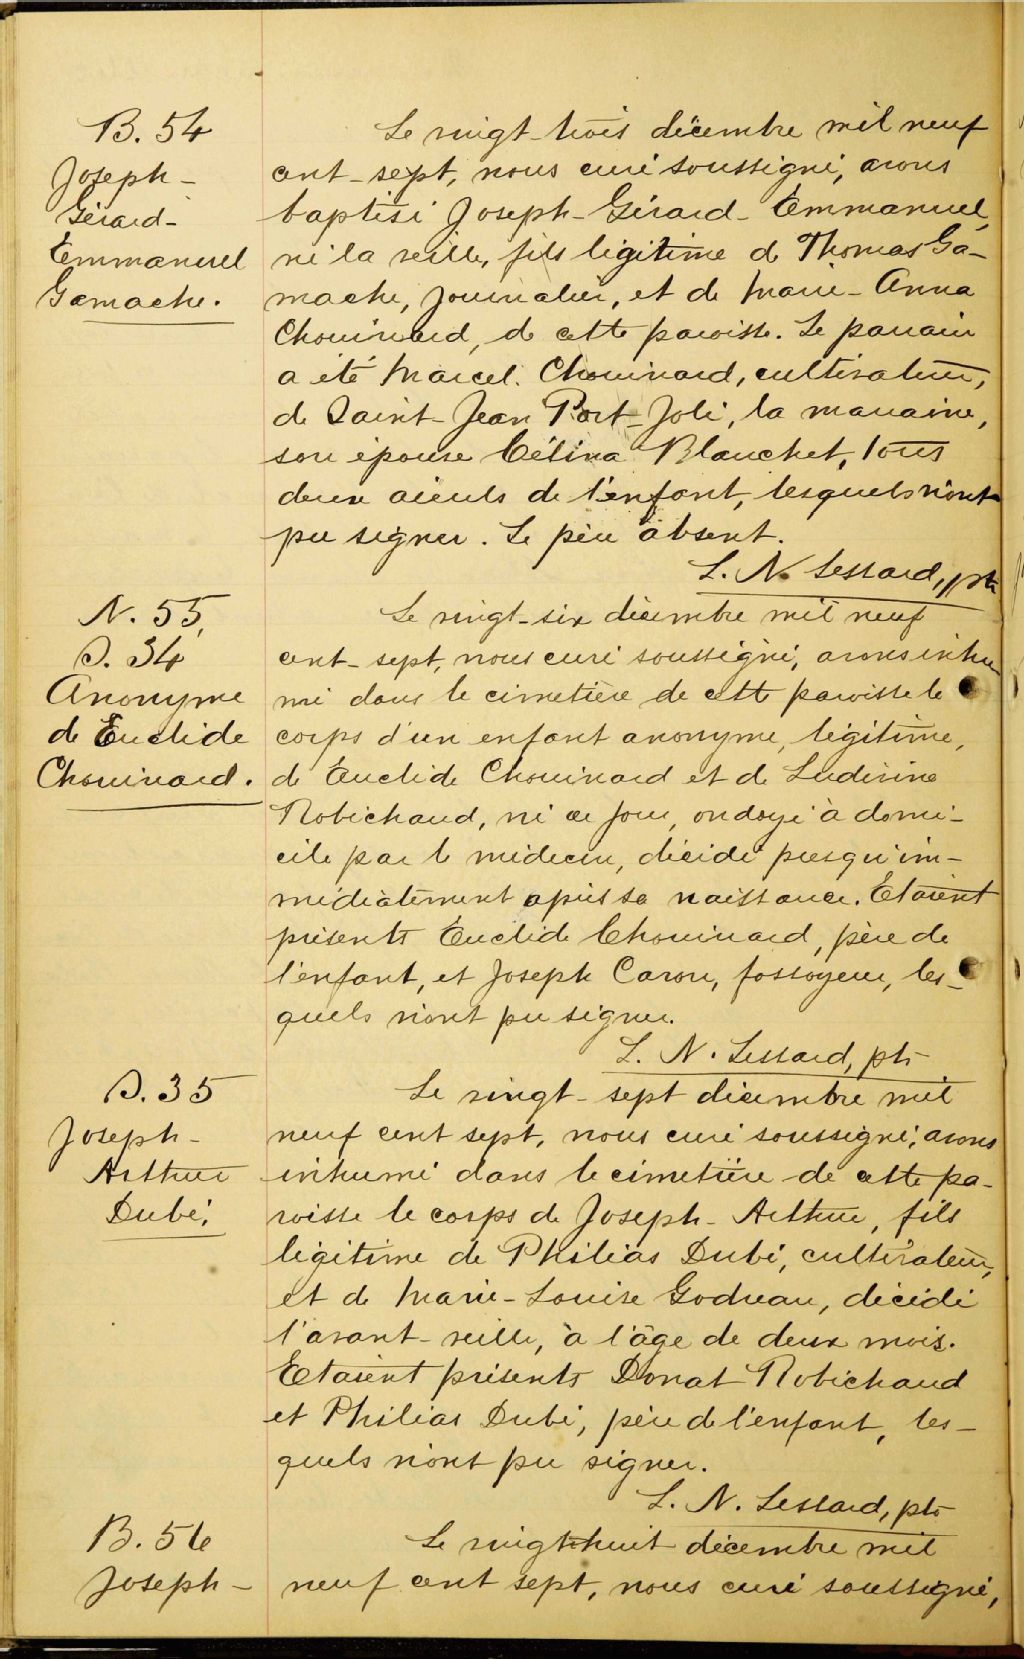 B. 54
Joseph-
Gérard-
Emmanuel
Gamache.
Le vingt-trois décembre mil neuf
cent-sept, nous curé soussigné, avons
baptisé Joseph-Gérard-Emmanuel,
né la veille, fils légitime de Thomas Ga-
mache, journalier, et de Marie-Anna
Chouinard, de cette paroisse. Le parrain
a été Marcel Chouinard, cultivateur,
de Saint-Jean Port-Joli, la marraine,
son épouse Célina Blanchet, tous
deux aïeuls de l'enfant, lesquels n'ont
pu signer. Le père absent.
L. N. Lessard, ptr
N. 55,
S. 34
Anonyme
de Euclide
Chouinard.
Le vingt-six décembre mil neuf
cent-sept, nous curé soussigné, avons inhu
mé dans le cimetière de cette paroisse le
corps d'un enfant anonyme, légitime,
de Euclide Chouinard et de Ludivine
Robichaud, né ce jour, ondoyé à domi-
cile par le médecin, décédé presqu'im-
médiatement après sa naissance. Etaient
présents Euclide Chouinard, père de
l'enfant, et Joseph Caron, fossoyeur, les-
quels n'ont pu signer.
L. N. Lessard, ptr
S. 35
Joseph-
Arthur
Dubé,
Le vingt-sept décembre mil
neuf cent sept, nous curé soussigné, avons
inhumé dans le cimetière de cette pa-
roisse le corps de Joseph-Arthur, fils
légitime de Philias Dubé, cultivateur,
et de Marie-Louise Godreau, décédé
l'avant-veille, à l'âge de deux mois.
Etaient présents Donat Robichaud
et Philias Dubé, père de l'enfant, les-
quels n'ont pu signer.
L. N. Lessard, ptr
B. 56
Joseph-
Le vingt-huit décembre mil
neuf cent sept, nous curé soussigné,